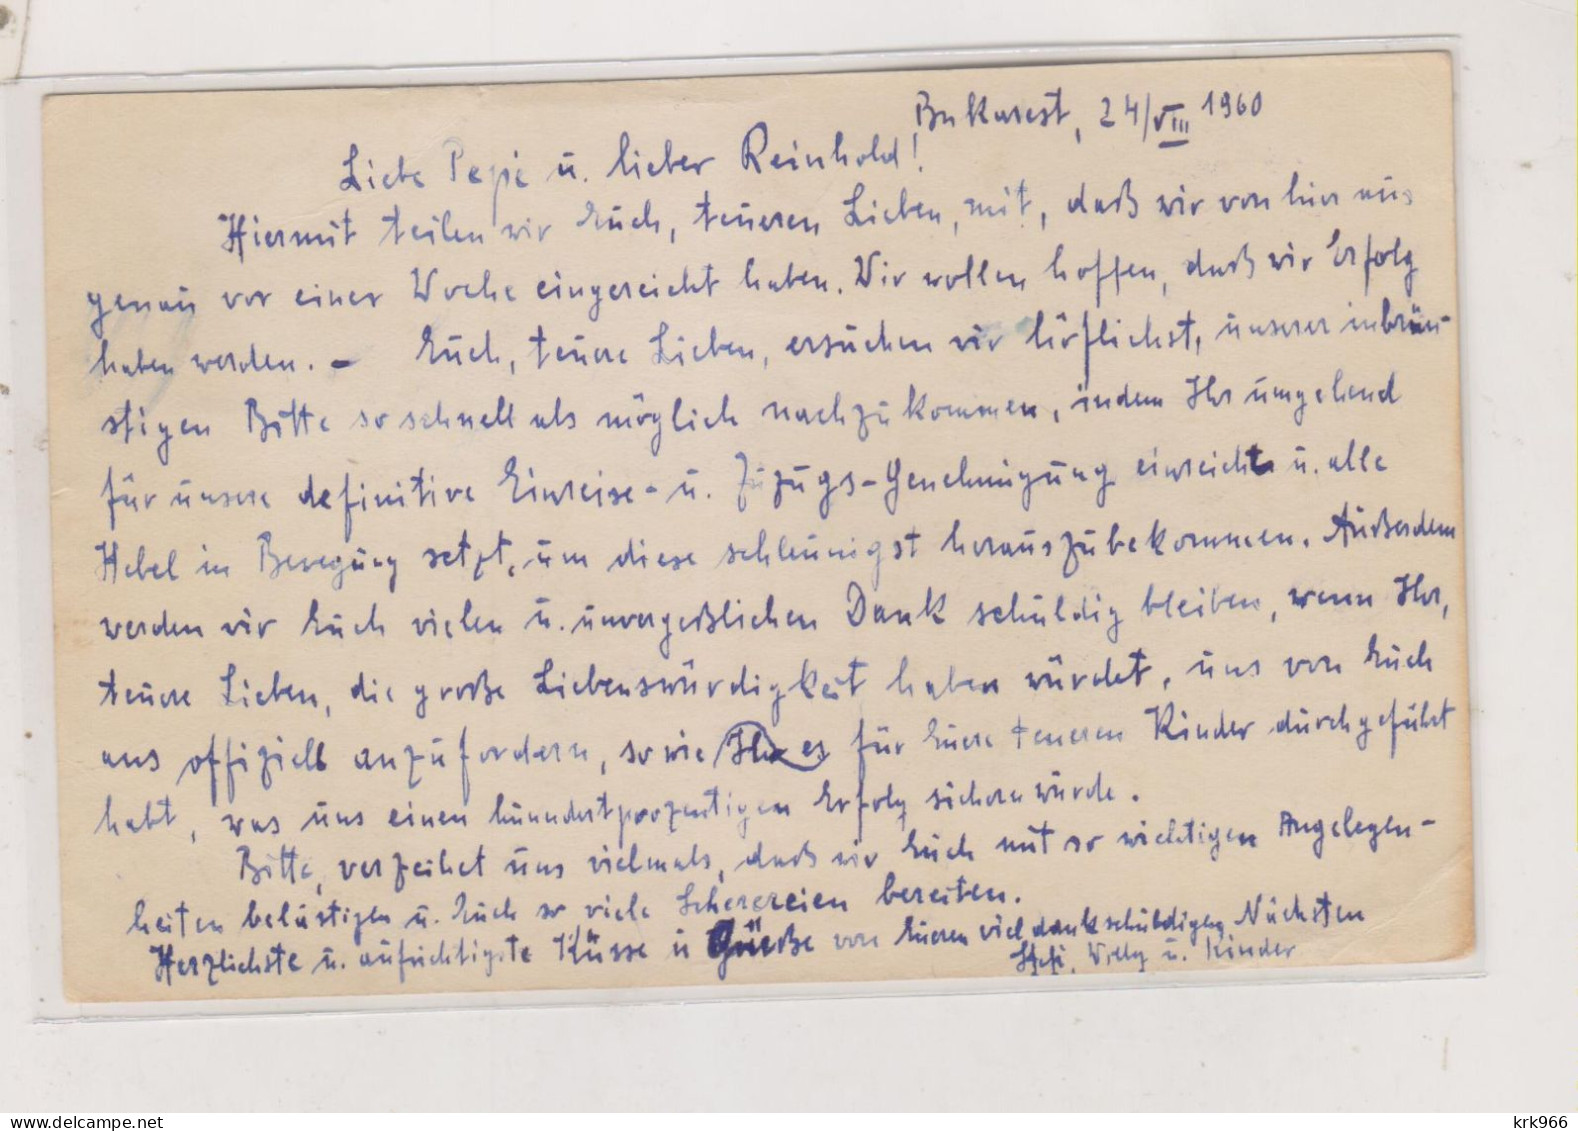 Bukarest, 24/VIII 1960
Liebe Pepi u. lieber Reinhold!
Hiermit teilen wir Euch, teueren Lieben, mit, daß wir von hier aus
genau vor einer Woche eingereicht haben. Wir wollen hoffen, daß wir Erfolg
haben werden. – Euch, teuere Lieben, ersuchen wir höflichst, unserer inbrün-
stigen Bitte so schnell als möglich nachzukommen, indem Ihr umgehend
für unsere definitive Einreise- u. Zuzugs-Genehmigung einreicht u. alle
Hebel in Bewegung setzt, um diese schleunigst herauszubekommen. Außerdem
werden wir Euch vielen u. unvergeßlichen Dank schuldig bleiben, wenn Ihr,
teuere Lieben, die große Liebenswürdigkeit haben würdet, uns von Euch
aus offiziell anzufordern, so wie Ihr es für Euere teueren Kinder durchgeführt
habt, was uns einen hunndertprozentigen Erfolg sichern würde.
Bitte, verzeihet uns vielmals, daß wir Euch mit so wichtigen Angelegen-
heiten belästigen u. Euch so viele Scherereien bereiten.
Herzlichste u. aufrichtigste Küsse u Grüße von Eueren viel dankschuldigen Nächsten
Stefi, Willy u. Kinder
krk966